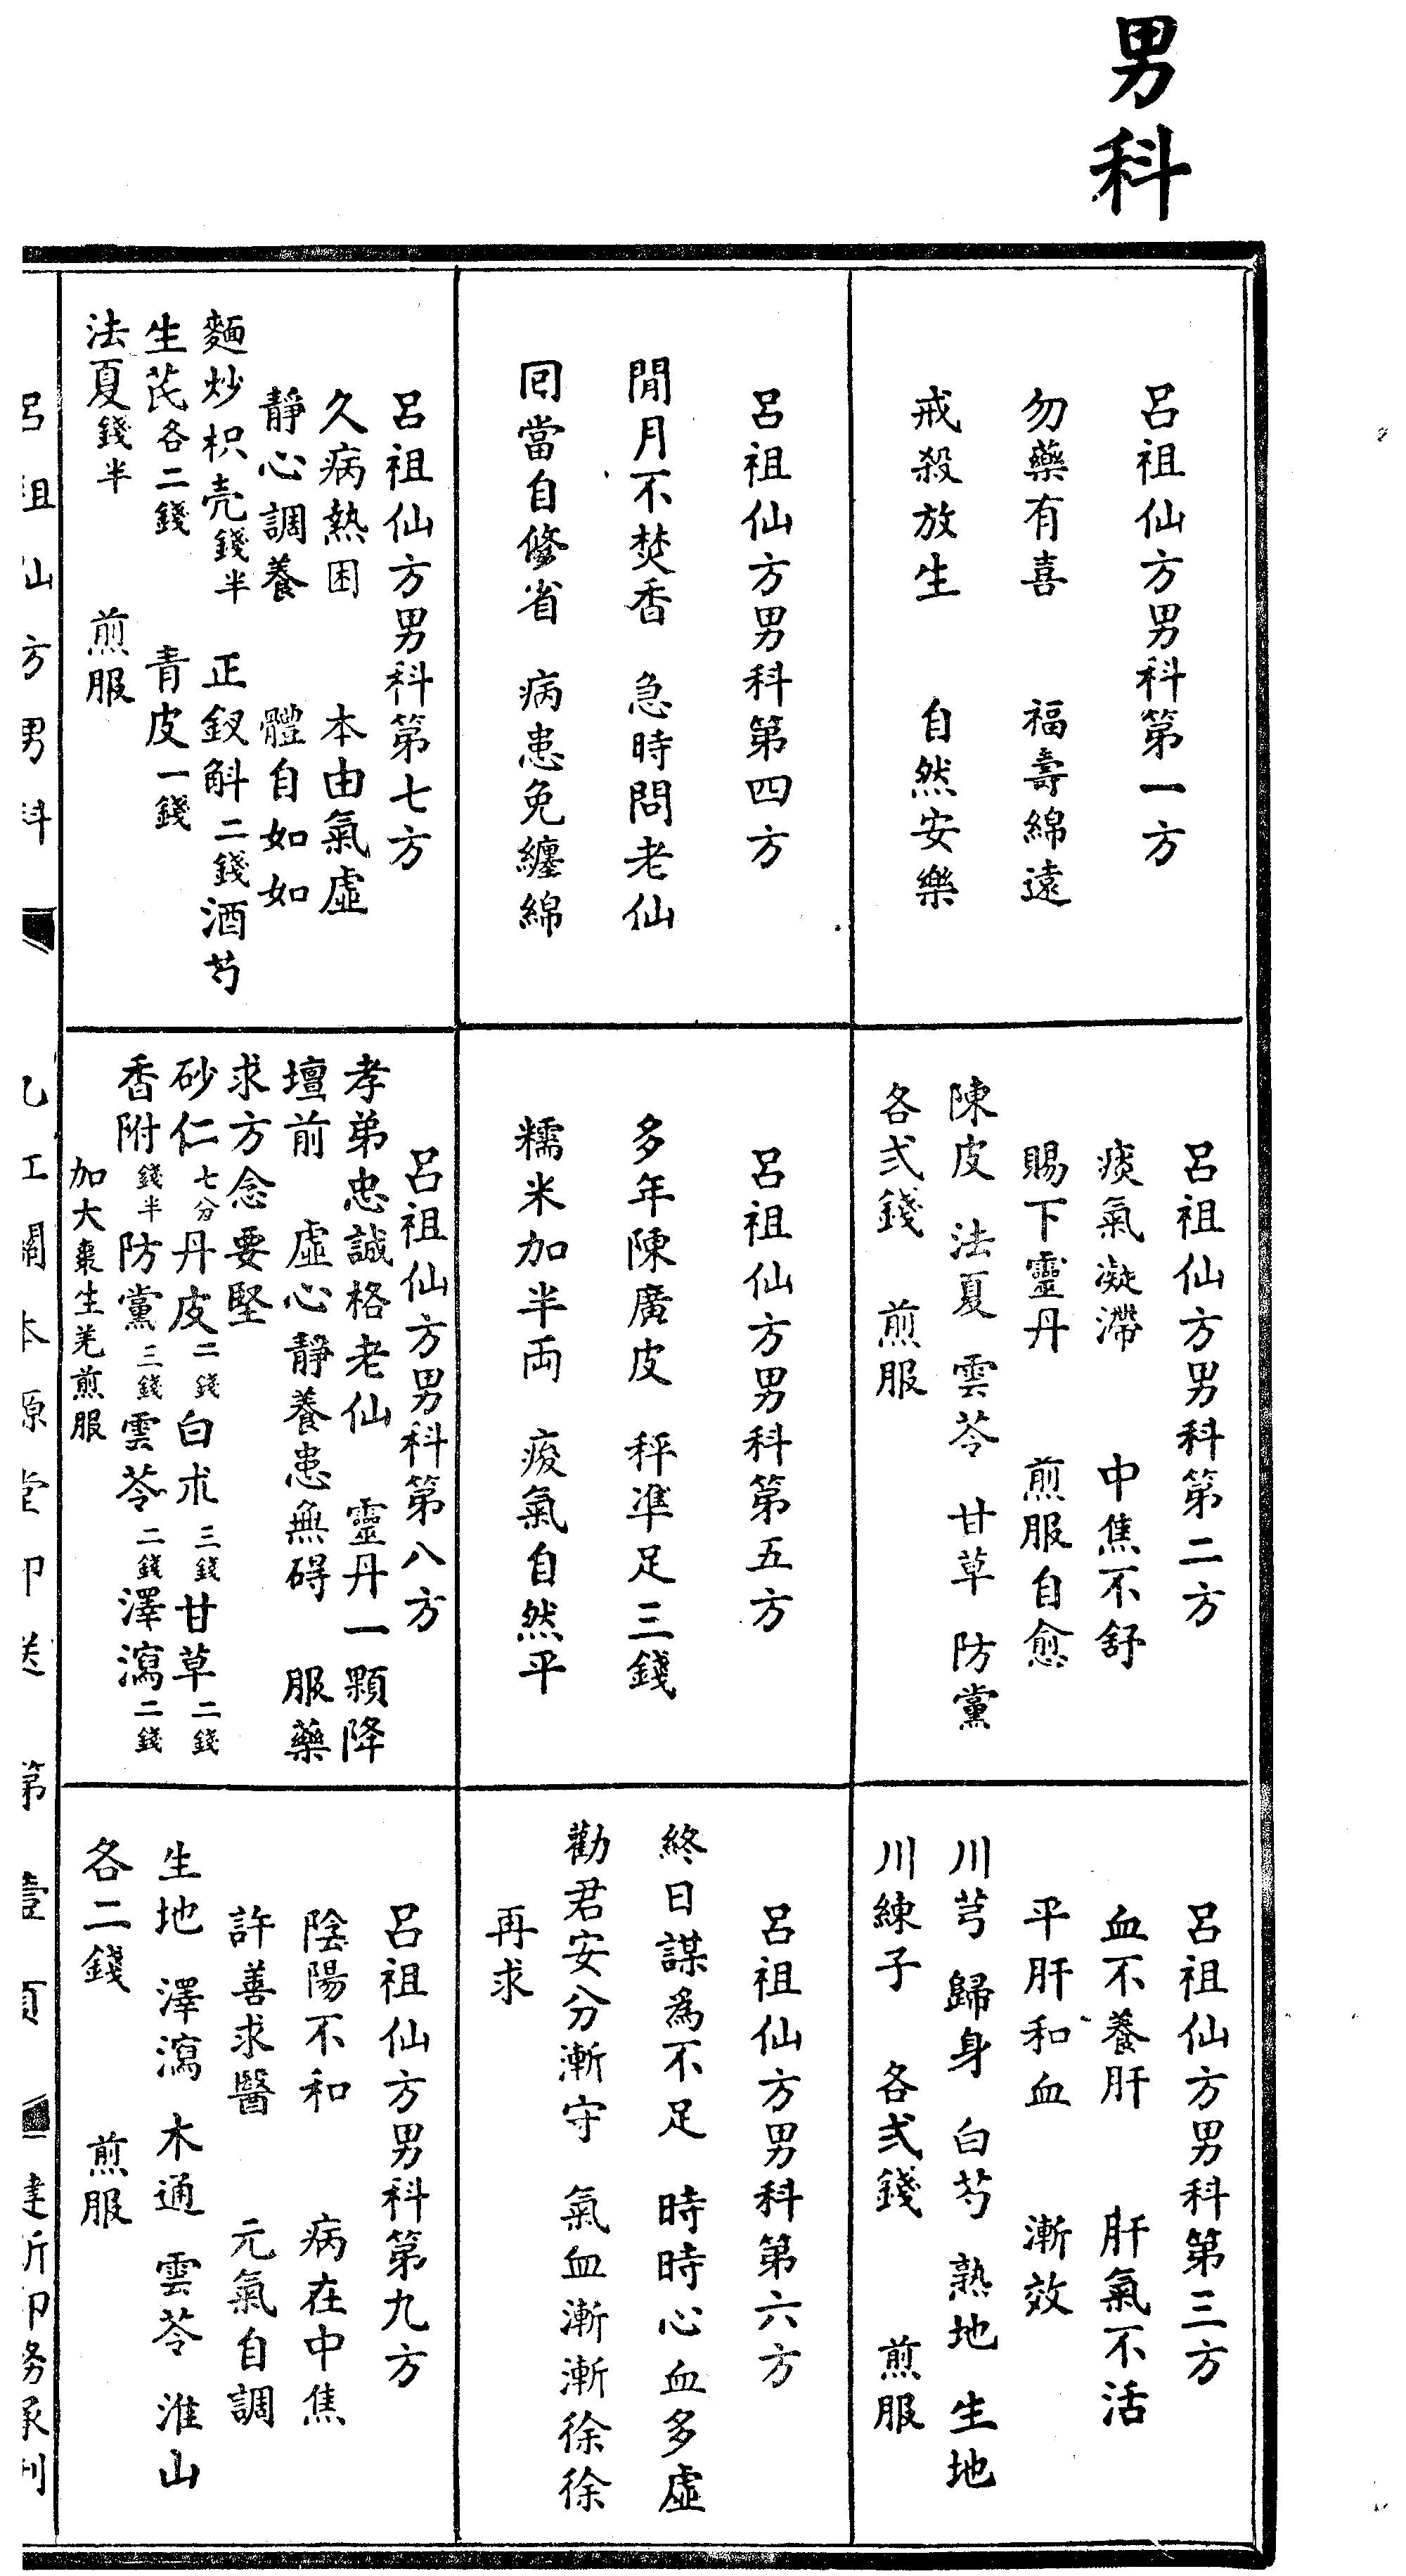 男科
呂祖仙方男科第一方
勿藥有喜　福壽綿遠
戒殺放生　自然安樂
呂祖仙方男科第二方
痰氣凝滯　中焦不舒
賜下靈丹　煎服自愈
陳皮　法夏　雲苓　甘草　防黨
各弍錢　煎服
呂祖仙方男科第三方
血不養肝　肝氣不活
平肝和血　漸效
川芎　歸身　白芍　熟地　生地
川練子　各弍錢　煎服
呂祖仙方男科第四方
閒月不焚香　急時問老仙
囘當自修省　病患免纏綿
呂祖仙方男科第五方
多年陳廣皮　秤準足三錢
糯米加半両　痰氣自然平
呂祖仙方男科第六方
終日謀為不足　時時心血多虛
勸君安分漸守　氣血漸漸徐徐
再求
呂祖仙方男科第七方
久病熱困　本由氣虛
靜心調養　體自如如
麵炒枳壳錢半　正釵斛二錢酒芍
生芪各二錢　青皮一錢
法夏錢半　煎服
呂祖仙方男科第八方
孝弟忠誠格老仙　靈丹一顆降
壇前　虛心靜養患無碍　服藥
求方念要堅
砂仁七分丹皮二錢白朮三錢甘草二錢
香附錢半防黨三錢雲苓二錢澤瀉二錢
加大棗生羌煎服
呂祖仙方男科第九方
陰陽不和　病在中焦
許善求醫　元氣自調
生地　澤瀉　木通　雲苓　淮山
各二錢　煎服
呂祖仙方男科　本源堂印送　第壹頁